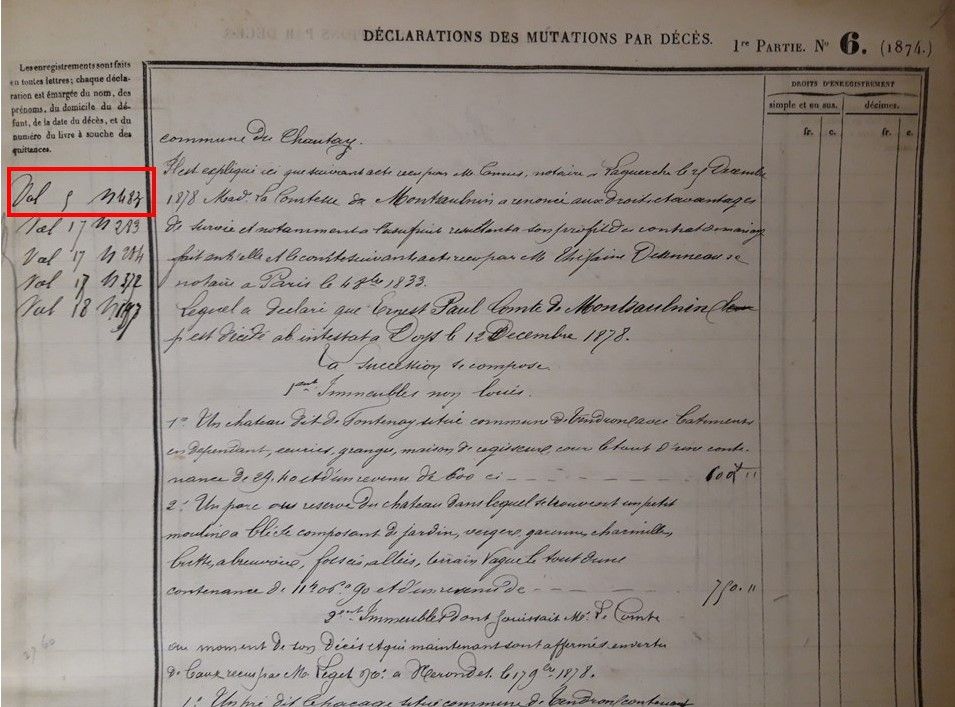 DÉCLARATIONS DES MUTATIONS PAR DÉCÈS. 1re PARTIE. No 6. (1874.)
Les enregistrements sont faits
en toutes lettres; chaque décla-
ration est émargée du nom, des
prénoms, du domicile du dé-
funt, de la date du décès, et du
numéro du livre à souche des
quittances.
DROITS D'ENREGISTREMENT
simple et en sus. décimes.
fr. c. fr. c.
Vol 5 N 483
Vol 17 N 283
Vol 17 N 284
Vol 17 N 372
Vol 18
commune de Chautay.
Il est expliqué ici que suivant acte reçu par M. notaire à Laguerche le 25 Decembre
1878 Mad. la Comtesse de Montsaulnin a renoncé aux droits et avantages
de survie et notamment a l'usufruit resultant a son profit du contrat de mariage
fait entre elle et le comte suivant acte reçu par M.
notaire a Paris le 4 8bre 1833.
Lequel a declaré que Ernest Paul Comte de Montsaulnin
est décédé ab intestat a le 12 Decembre 1878.
La succession se compose
1ent Immeubles non loués.
1o Un chateau dit de Fontenay situé commune de Tendron avec batiments
en dependant, ecuries, granges, maison de regisseur, cour le tout d'une conte-
nance de 29. 40 et d'un revenu de 600 ci 600 "
2o Un parc ou reserve du chateau dans lequel se trouvent un petit
moulin a blé le composant de jardin, vergers, garenne, charmilles,
butte, abreuvoirs, fossés, allées, terrain vague le tout d'une
contenance de 11h 06a 90 et d'un revenu de 750. "
2ent Immeubles dont jouissait Mr. le Comte
au moment de son décès et qui maintenant sont affermés en vertu
de baux reçus par M. Leget No: a Nerondes le 17 9bre 1878.
1o Un pré dit situé commune de Tendron contenant